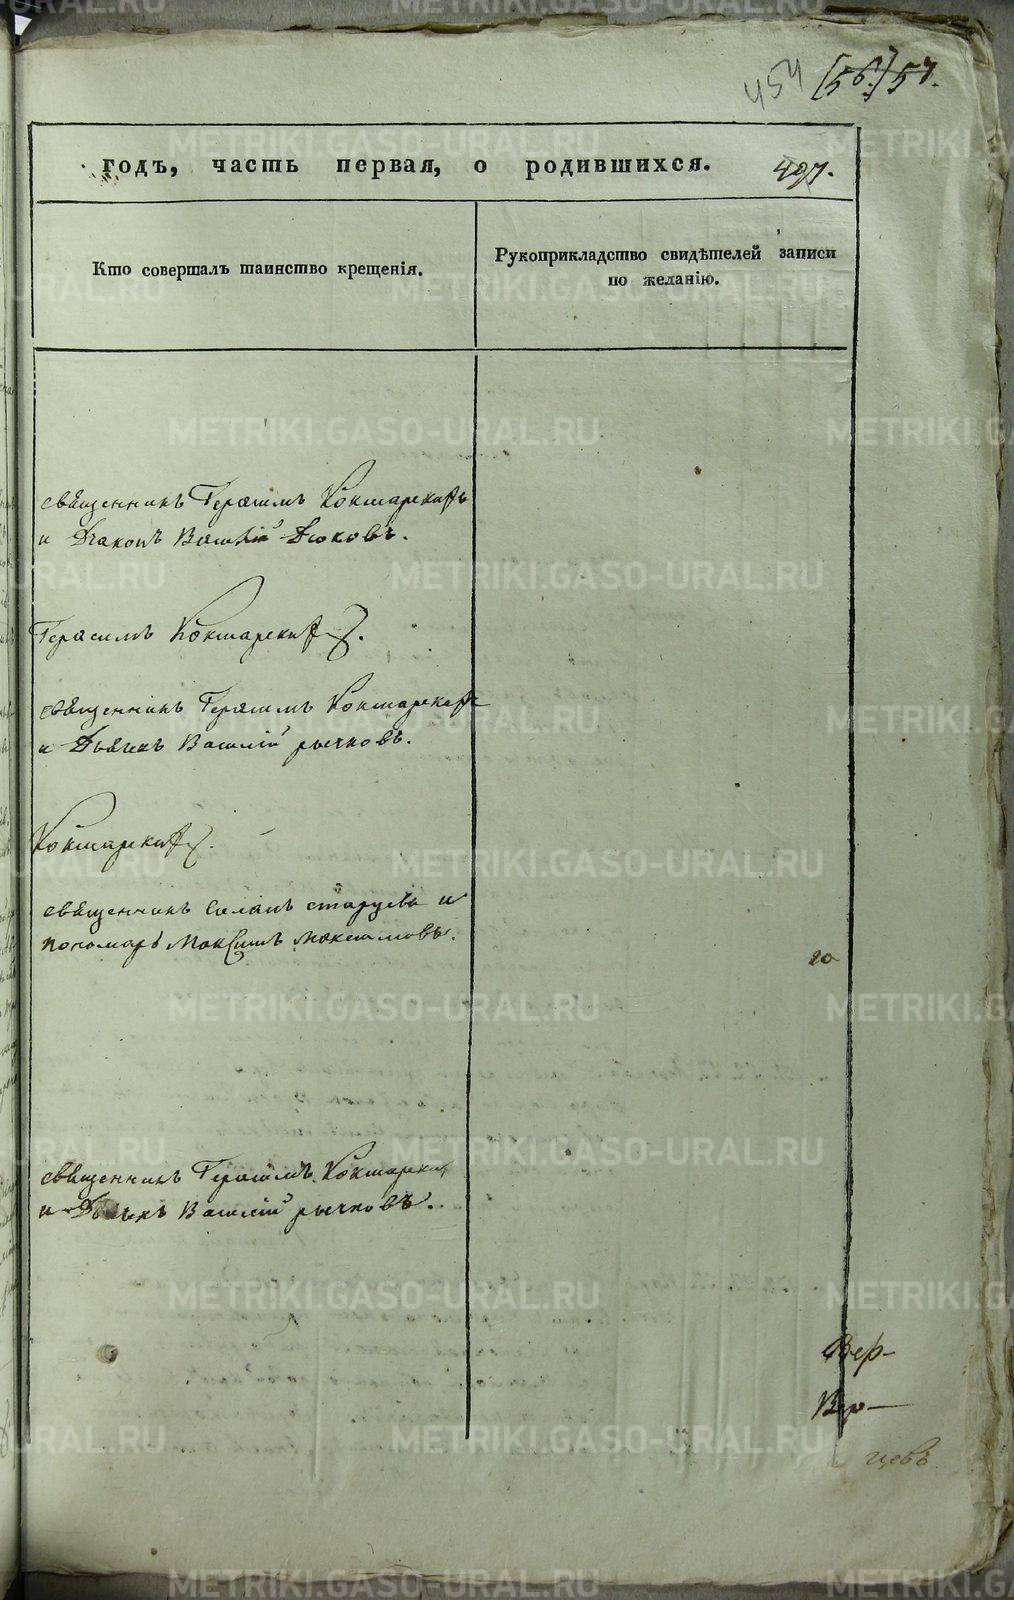 454 (56.) 57.
годъ, часть первая, о родившихся. 497.
Кто совершалъ таинство крещенія.
Рукоприкладство свидѣтелей записи
по желанію.
священникъ Герасимъ Кокшарскій
и Діаконъ Василій Дюковъ.
Герасимъ Кокшарскій.
священникъ Герасимъ Кокшарскій
и Дьячекъ Василій рычковъ.
Кокшарскій.
священникъ старцевъ и
пономарь Максимъ Максимовъ.
священникъ Герасимъ Кокшарскій
и Дьячекъ Василій рычковъ.
Вер-
цевъ
METRIKI.GASO-URAL.RU